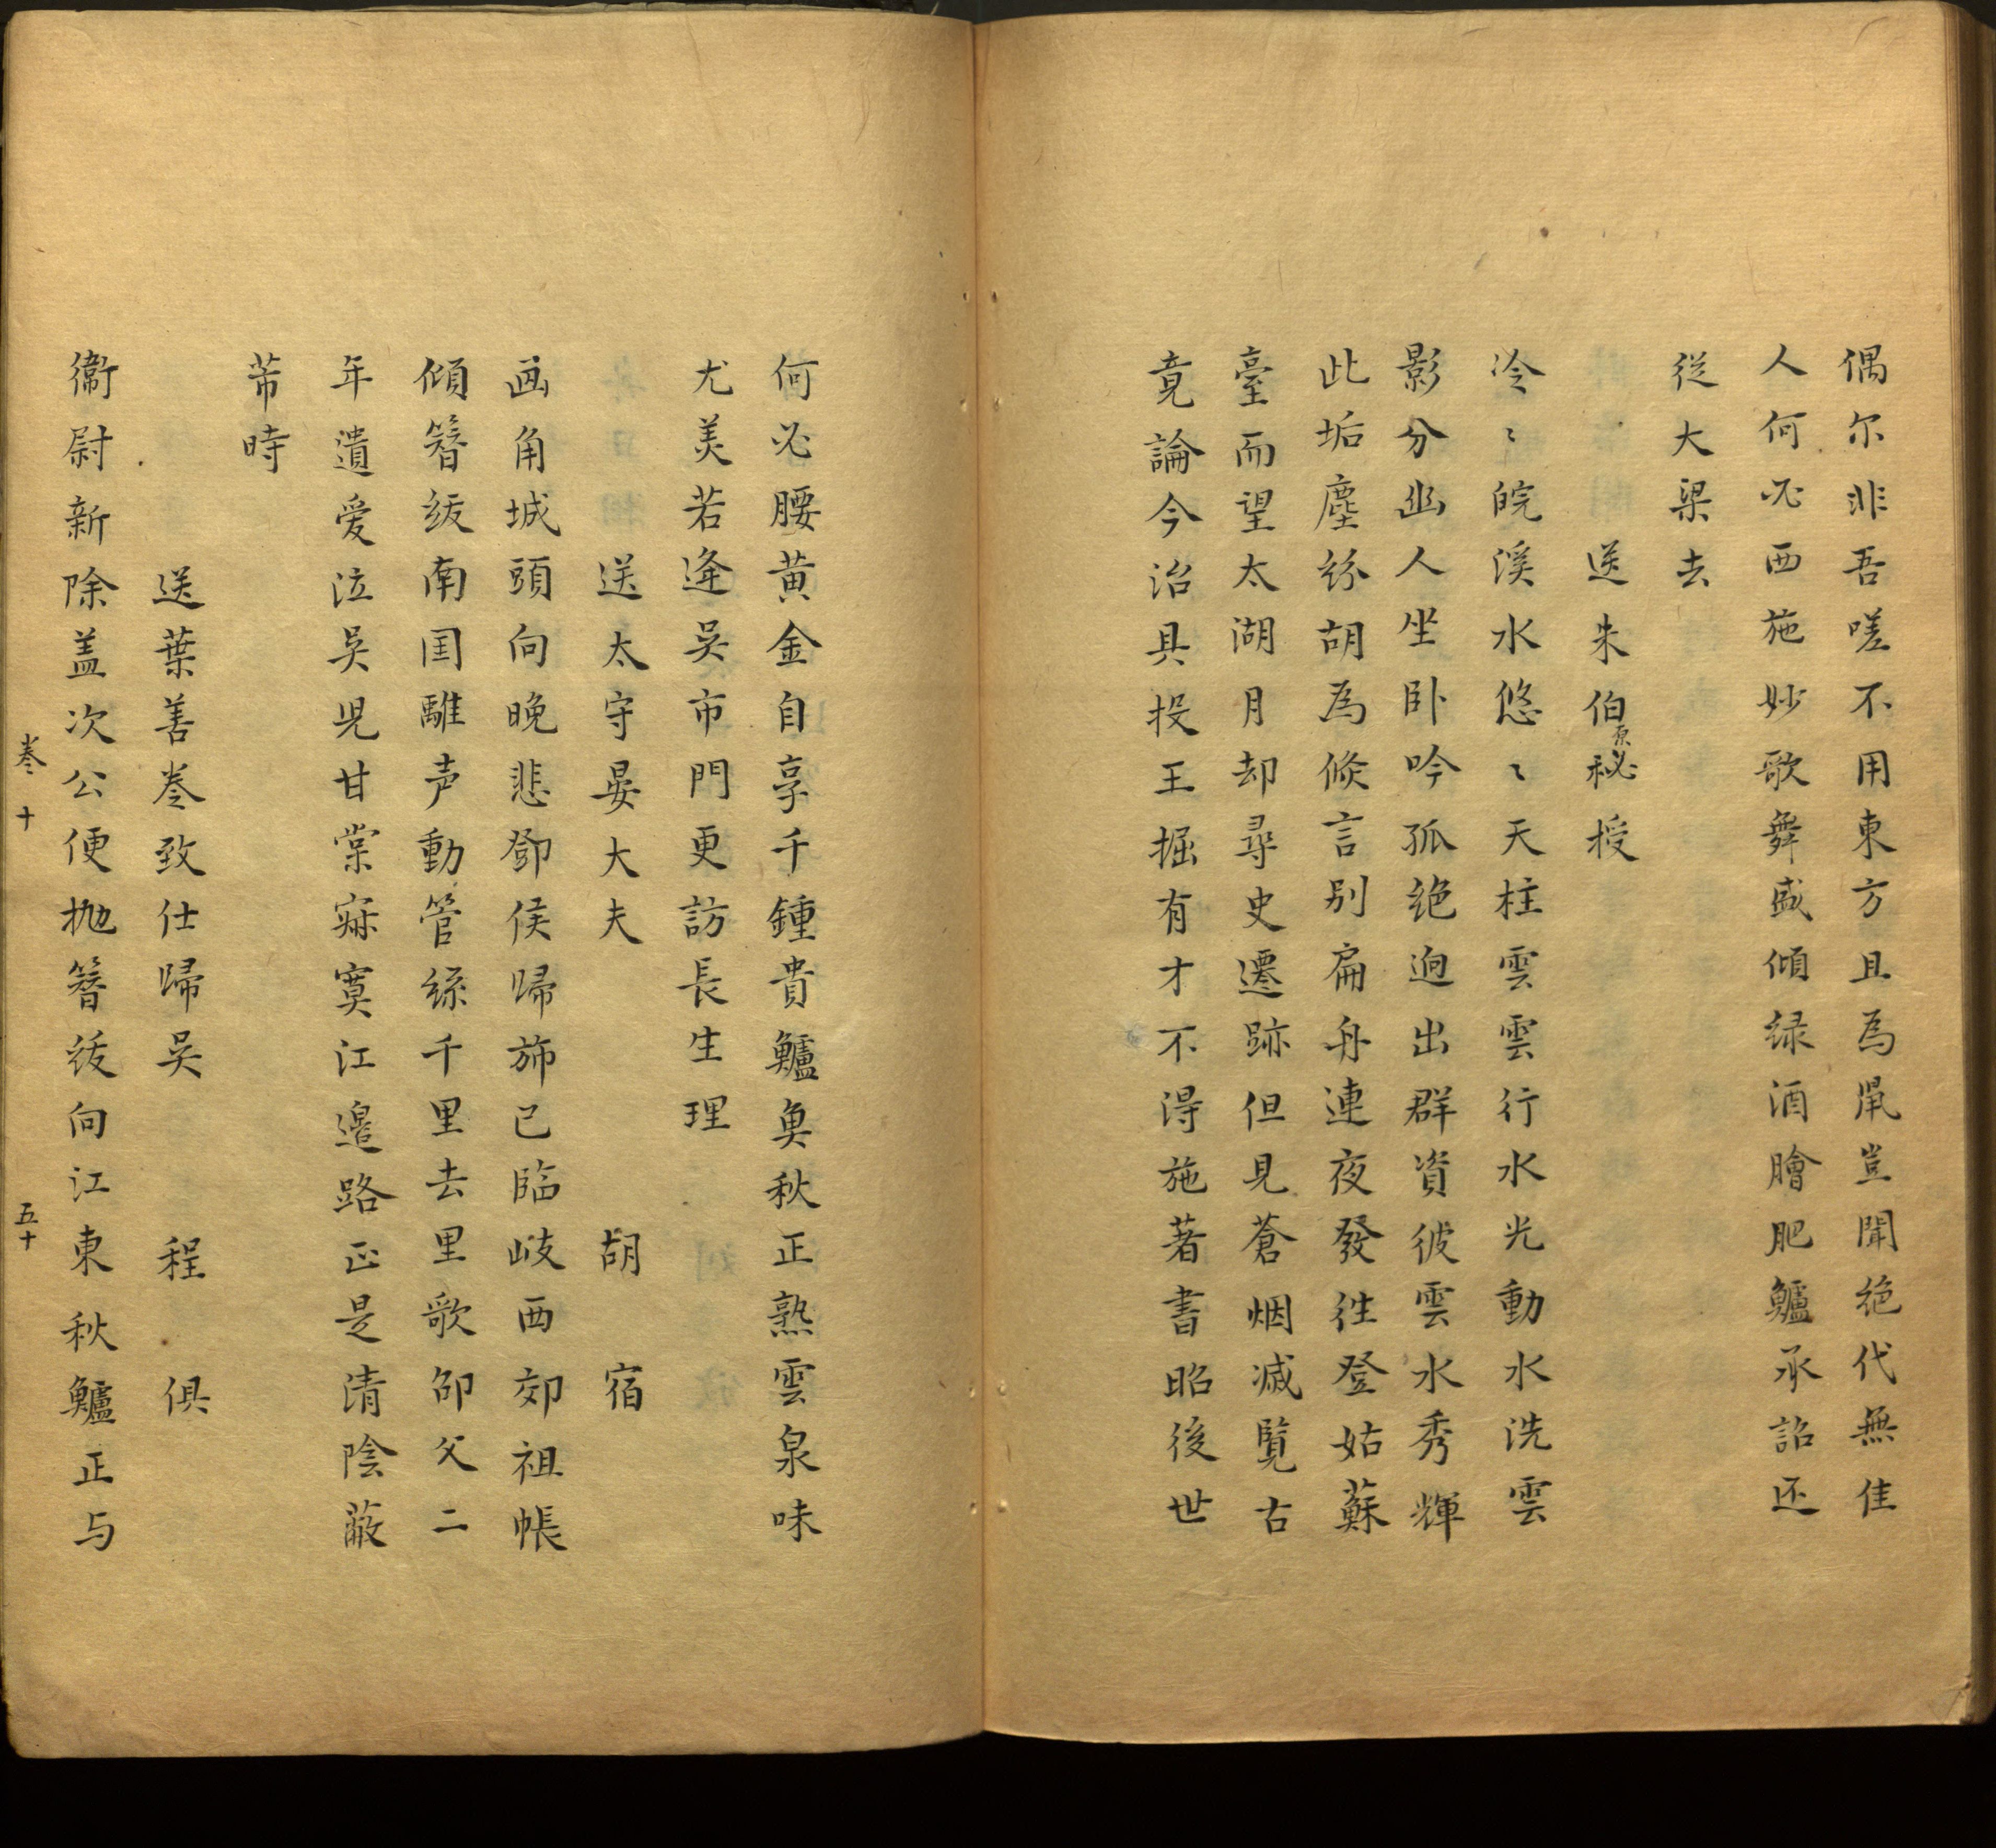 偶尔非吾嗟不用東方且為鼠豈聞絶代無佳
人何必西施妙歌舞盛傾緑酒膾肥鱸承詔还
従大梁去
送朱伯原秘授
冷〻皖溪水悠〻天柱雲雲行水光動水洗雲
影分幽人坐卧吟孤绝迥出群資彼雲水秀輝
此垢塵紛胡為倐言别扁舟連夜發徃登姑蘇
臺而望太湖月却尋史遷跡但見蒼烟滅覧古
竟論今治具投王掘有才不得施著書昭後世
何必腰黄金自享千鍾貴鱸奥秋正熟雲泉味
尤美若逢吴市門更訪長生理
送太守晏大夫 胡宿
画角城頭向晚悲鄧侯歸斾已臨岐西郊祖帳
傾簪紱南国騅声動管絲千里去里歌邵父二
年遺愛泣吴児甘棠寂寞江邉路正是清陰蔽
芾時
送葉善巻致仕歸吴 程俱
衞尉新除盖次公便抛簪紱向江東秋鱸正与
巻十 五十